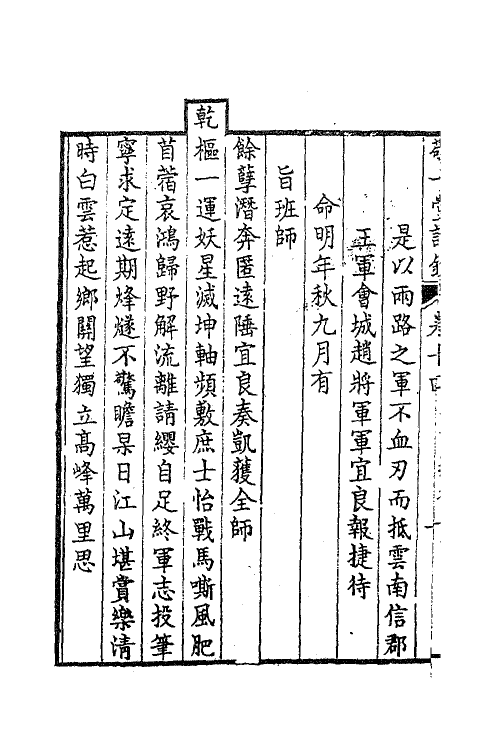 是以兩路之軍不血刃而抵雲南信郡
王軍會城趙將軍軍宜良報捷待
命明年秋九月有
旨班師
餘孽潛奔匿遠陲宜良奏凱獲全師
乾樞一運妖星滅坤軸頻敷庶士怡戰馬嘶風肥
苜蓿哀鴻歸野解流離請纓自足終軍志投筆
寧求定遠期烽燧不驚瞻杲日江山堪賞樂清
時白雲惹起鄉關望獨立高峰萬里思